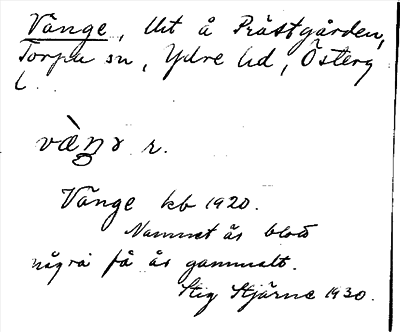 Vänge, Ut å Prästgården,
Torpa sn, Ydre hd, Österg
l.
væ̀ŋɤ r.
Vänge kb 1920.
Namnet är blott
några få år gammalt.
Stig Stjärne 1930.